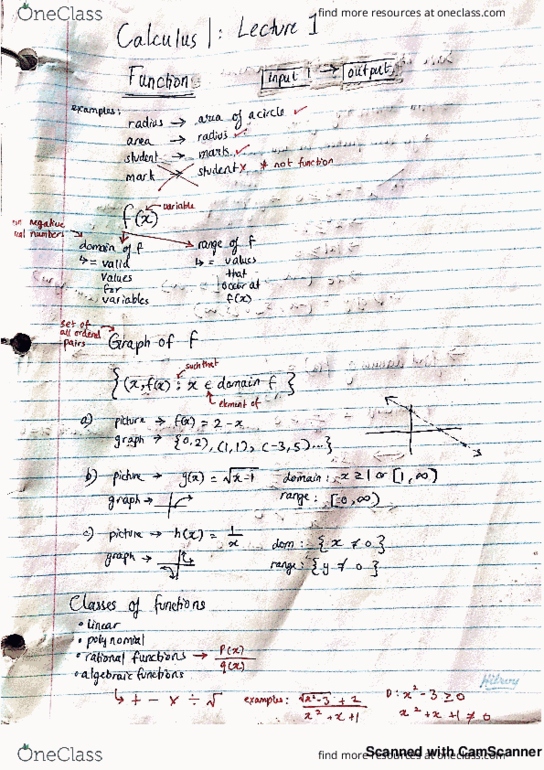 OneClass
find more resources at oneclass.com
Calculus 1: Lecture 1
Function
input → output
examples:
radius → area of a circle ✓
area → radius ✓
student → mark ✓
mark → student x * not function
f(x) variable
non negative
real numbers
domain of f
range of f
↳ = valid
values
for
variables
↳ = values
that
occur at
f(x)
set of
all ordered
pairs
Graph of f
such that
{(x, f(x) : x ∈ domain f }
element of
a) picture → f(x) = 2 - x
graph → {0,2), (1,1), (-3,5)...}
b) picture → g(x) = √x-1 domain: x ≥ 1 or [1, ∞)
graph → range: [0, ∞)
c) picture → h(x) = 1/x dom: { x ≠ 0 }
graph → range: { y ≠ 0 }
Classes of functions
• linear
• polynomial
• rational functions → P(x)/q(x)
• algebraic functions
↳ + − × ÷ √
examples: √x²-3 + 2 / x² + x + 1
D: x² - 3 ≥ 0
x² + x + 1 ≠ 0
OneClass
find more resources at oneclass.com
Scanned with CamScanner